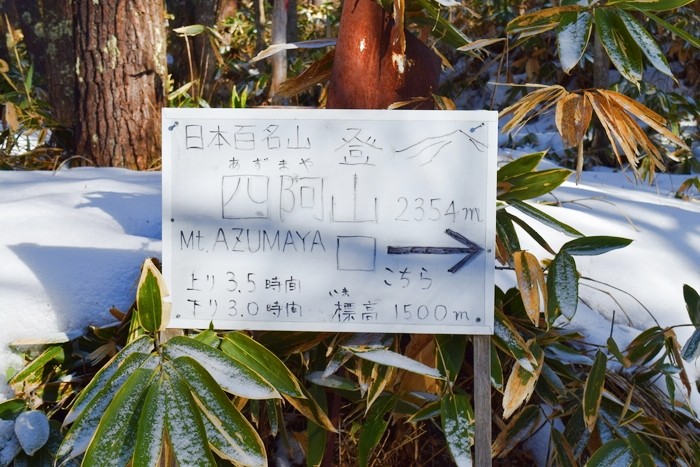 日本百名山 登
あずまや
四阿山 2354m
Mt. AZUMAYA 口
上り 3.5時間 こちら
いま
下り 3.0時間 標高 1500m